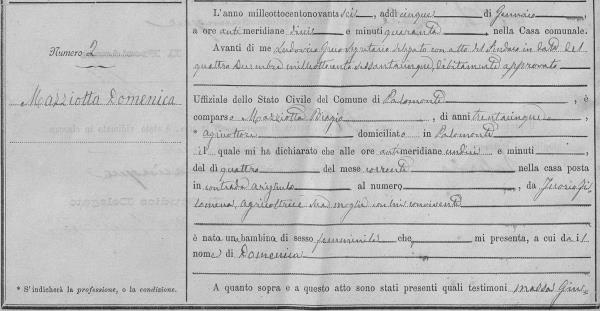 Numero 2
Mazziotta Domenica
* S'indicherà la professione, o la condizione.
L'anno millottocentonovantasei, addì cinque di Gennaio,
a ore antimeridiane dieci e minuti quaranta, nella Casa comunale.
Avanti di me Ludovico Segretario delegato con atto del Sindaco in data del
quattro Dicembre milleottocento sessantacinque, debitamente approvato
Uffiziale dello Stato Civile del Comune di Palomonte, è
comparso Mazziotta Biagio, di anni trentacinque
* agricoltore domiciliato in Palomonte
il quale mi ha dichiarato che alle ore antimeridiane undici e minuti,
del dì quattro del mese corrente nella casa posta
in contrada al numero, da Iuorio Fi=
lomena, agricoltrice sua moglie con lui convivente
è nato un bambina di sesso femminile che mi presenta, a cui da il
nome di Domenica
A quanto sopra e a questo atto sono stati presenti quali testimoni Massa Giu=